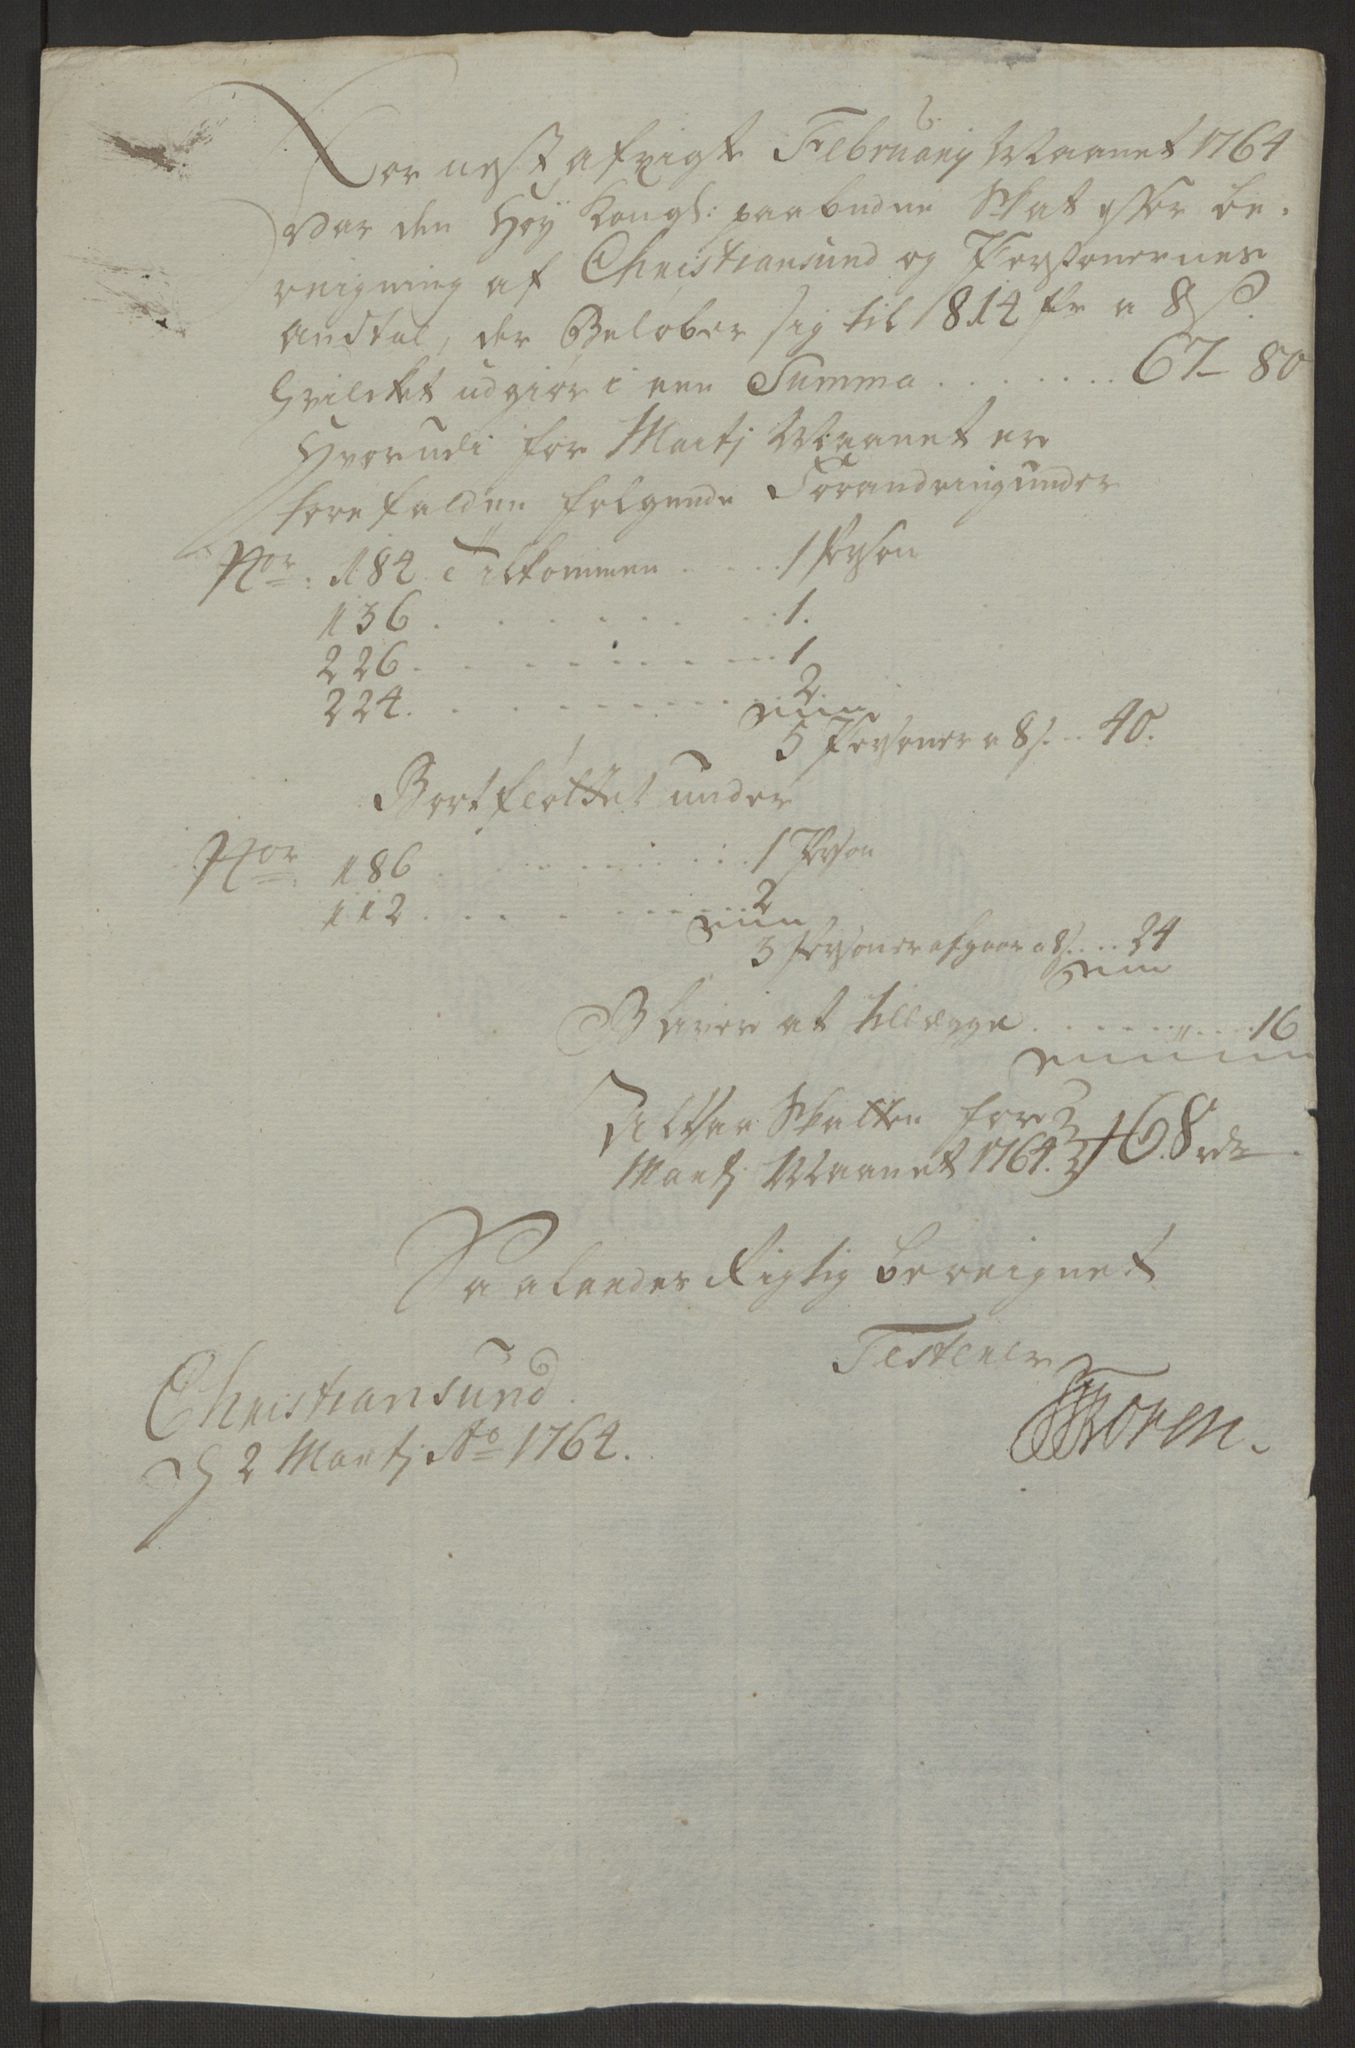 For nest afvigte February Maanet 1764
var den Høy Kongl: paabudne Skat efter be-
reigning af Christiansund og Personernes
Andtal, der Beløber sig til 814 st a 8 s
hvilcket udgiør i een Summa . . . . . . . 67 - 80
Hvorudi for Martj Maanet er
forefalden følgende Forandring under
Nor: 184 Tilkommen . . . . . 1 Person
136 . . . . . . . . . 1.
226 . . . . . . . . . 1
224. . . . . . . . . . 2
5 Personer a 8 s. . . 40.
Bortfløttet under
Nor: 186 . . . . . . . . . 1 Person
112 . . . . . . . . . 2
3 Personer afgaar a 8 s. . . . 24
Bliver at tillægge . . . . . . " . . . 16
Altsaa Skatten for
Martj Maanet 1764. 68 rd
Saaleedes Rigtig bereignet
Testerer
Christiansund
d 2 Martj Ao 1764.